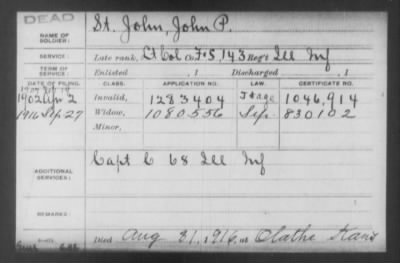 DEAD
NAME OF SOLDIER: St. John, John P.
SERVICE: Late rank, Lt Col Co. F+S, 143 Reg't Ill Inf
TERM OF SERVICE: Enlisted , 1 Discharged , 1
DATE OF FILING. CLASS. APPLICATION NO. LAW. CERTIFICATE NO.
1902 2 Invalid, 1283404 1046,914
1916 Sep 27 Widow, 1080556 Sep. 830102
Minor,
ADDITIONAL SERVICES: Capt C 68 Ill Inf
REMARKS:
Died Aug 31, 1916, at Olathe Kans